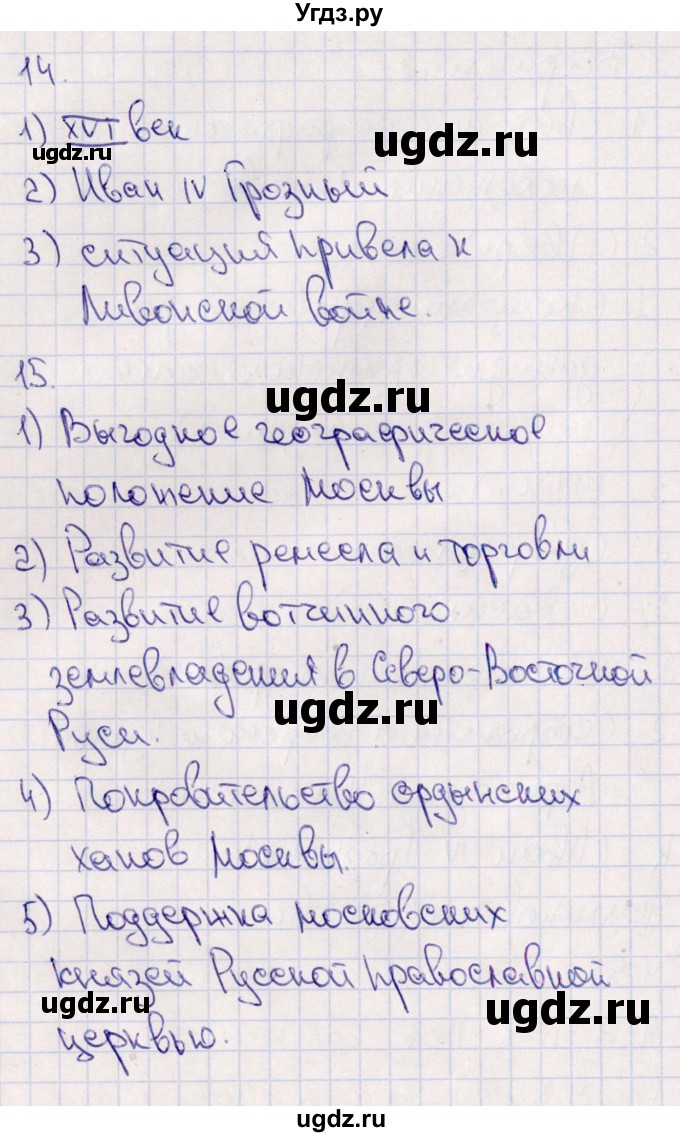 Угдз.ру
14.
1) XVI век
ugdz.ru
ugdz.ru
2) Иван IV Грозный
3) ситуация привела к
Ливонской войне.
15.
ugdz.ru
1) Выгодное географическое
положение Москвы
2) Развитие ремесла и торговли
3) Развитие вотчинного
землевладения в Северо-Восточной
ugdz.ru
Руси.
4) Покровительство ордынских
ханов Москвы.
5) Поддержка московских
князей Русской православной
ugdz.ru
ugdz.ru
церквью.
ugdz.ru